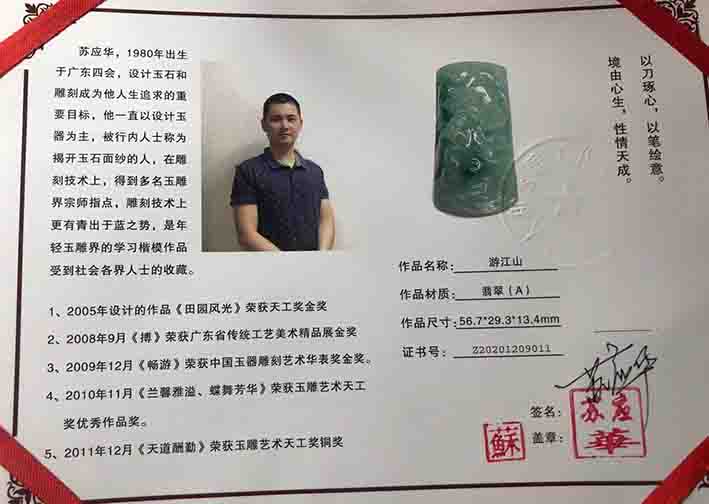 苏应华，1980年出生
于广东四会，设计玉石和
雕刻成为他人生追求的重
要目标，他一直以设计玉
器为主，被行内人士称为
揭开玉石面纱的人，在雕
刻技术上，得到多名玉雕
界宗师指点，雕刻技术上
更有青出于蓝之势，是年
轻玉雕界的学习楷模作品
受到社会各界人士的收藏。
1、2005年设计的作品《田园风光》荣获天工奖金奖
2、2008年9月《搏》荣获广东省传统工艺美术精品展金奖
3、2009年12月《畅游》荣获中国玉器雕刻艺术华表奖金奖。
4、2010年11月《兰馨雅溢、蝶舞芳华》荣获玉雕艺术天工
奖优秀作品奖。
5、2011年12月《天道酬勤》荣获玉雕艺术天工奖铜奖
以刀琢心，以笔绘意。
境由心生，性情天成。
作品名称：游江山
作品材质：翡翠（A）
作品尺寸：56.7*29.3*13.4mm
证书号：Z20201209011
签名：苏应华
盖章：
蘇
苏应
華